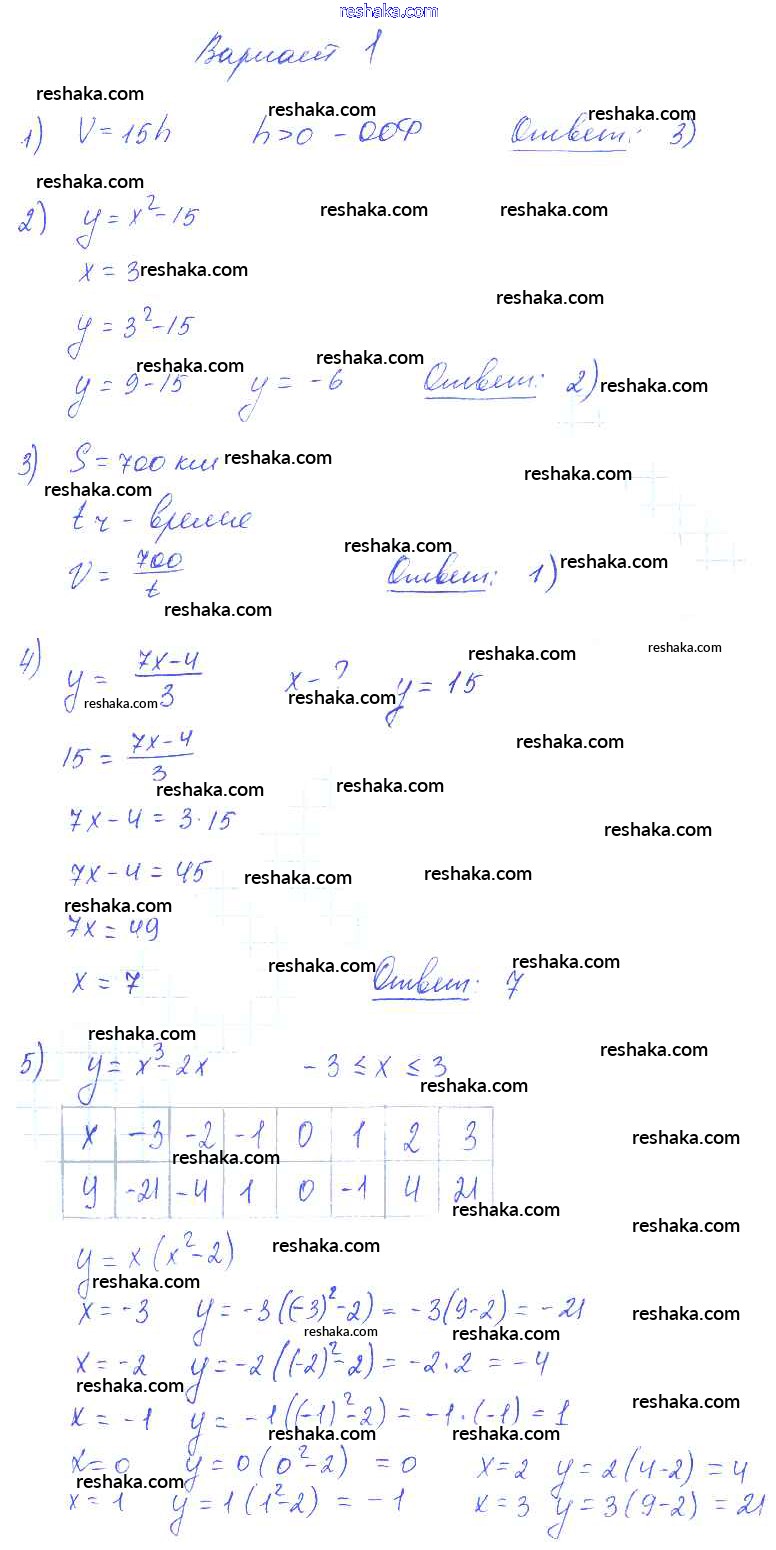 reshaka.com
Вариант 1
reshaka.com reshaka.com reshaka.com
1) V = 15h h>0 - ООФ Ответ: 3)
reshaka.com
2) y = x² - 15 reshaka.com reshaka.com
x = 3 reshaka.com
reshaka.com
y = 3² - 15
reshaka.com reshaka.com
y = 9 - 15 y = -6 Ответ: 2) reshaka.com
3) S = 700 км reshaka.com reshaka.com
reshaka.com
t ч - время
reshaka.com
V = 700/t Ответ: 1) reshaka.com
reshaka.com
4) y = (7x-4)/3 x - ? y = 15 reshaka.com reshaka.com
reshaka.com reshaka.com
15 = (7x-4)/3 reshaka.com
reshaka.com reshaka.com
7x - 4 = 3 · 15 reshaka.com
7x - 4 = 45 reshaka.com reshaka.com
reshaka.com
7x = 49
x = 7 reshaka.com Ответ: 7 reshaka.com
reshaka.com reshaka.com
5) y = x³ - 2x -3 ≤ x ≤ 3
reshaka.com
x -3 -2 -1 0 1 2 3 reshaka.com
reshaka.com
y -21 -4 1 0 -1 4 21
reshaka.com reshaka.com
y = x(x² - 2) reshaka.com
reshaka.com
x = -3 y = -3((-3)² - 2) = -3(9-2) = -21 reshaka.com
reshaka.com reshaka.com
x = -2 y = -2((-2)² - 2) = -2 · 2 = -4
reshaka.com reshaka.com
x = -1 y = -1((-1)² - 2) = -1 · (-1) = 1
reshaka.com reshaka.com
x = 0 y = 0(0² - 2) = 0 x = 2 y = 2(4-2) = 4
reshaka.com
x = 1 y = 1(1² - 2) = -1 x = 3 y = 3(9-2) = 21